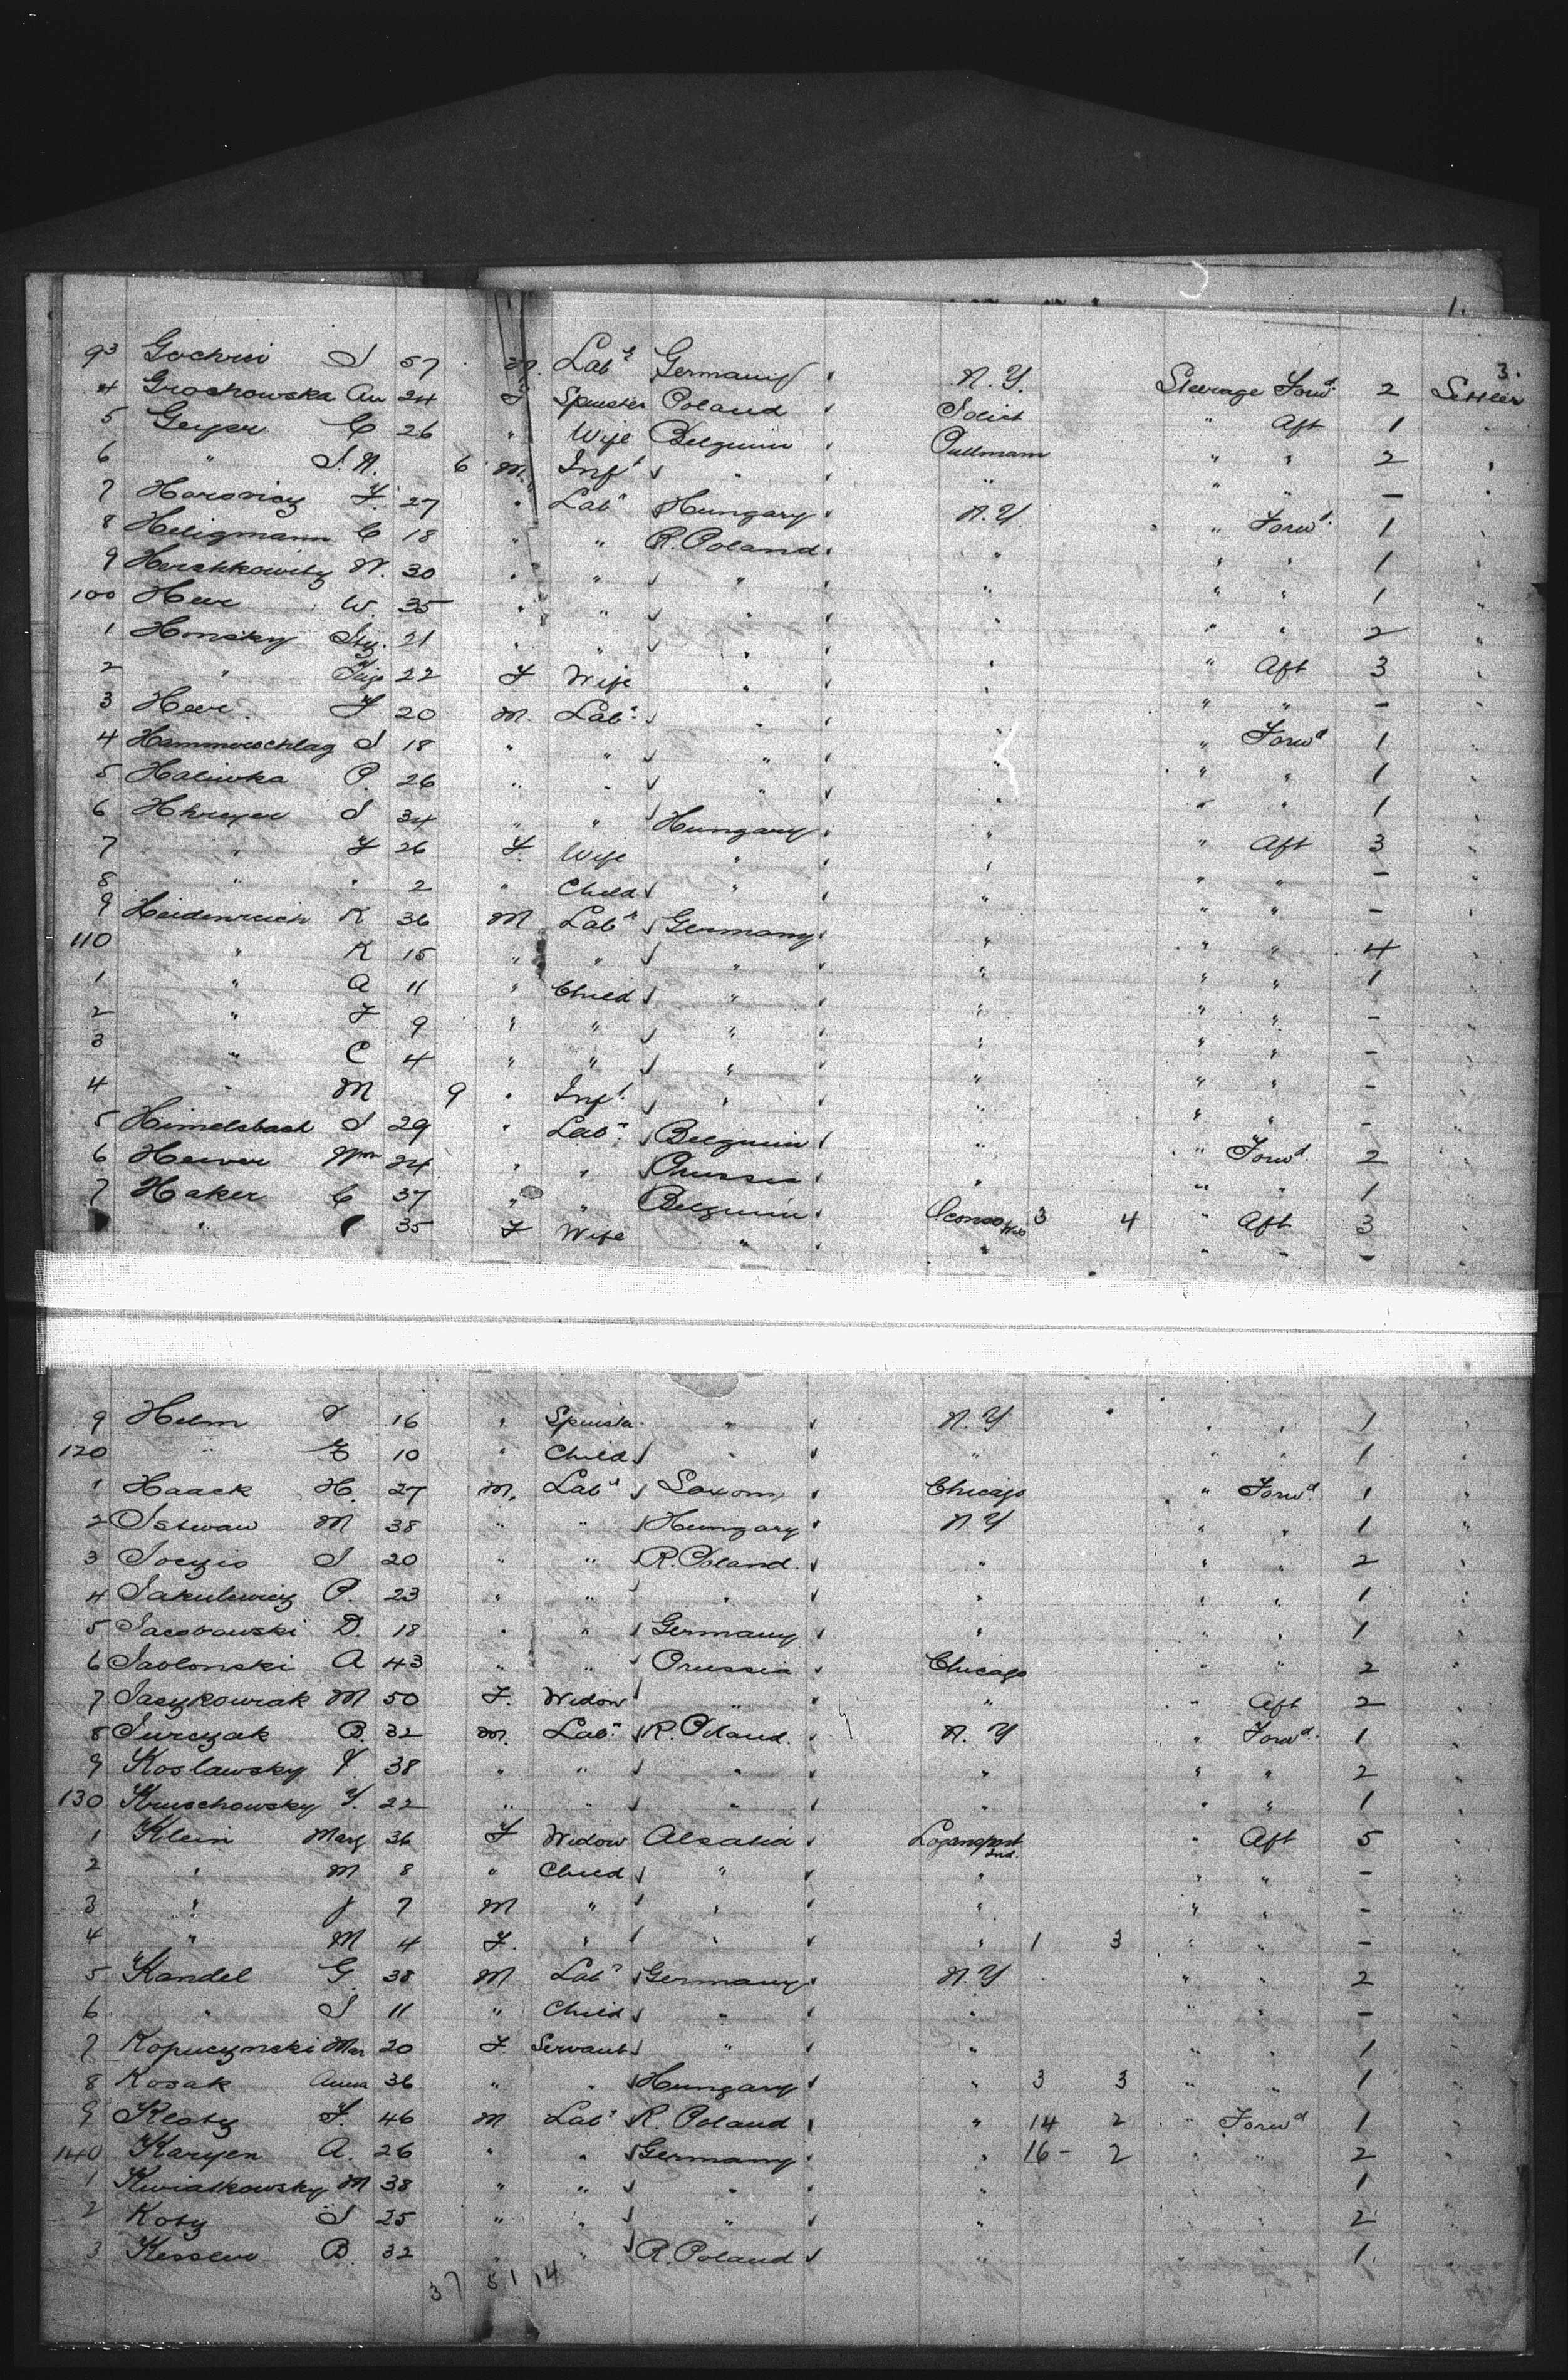 1.
3.
93 Gochrei S 57 M. Labr Germany N.Y. Steerage Forwd 2 Settler
4 Grochowska An 24 F Spinster Poland Joliet " Aft 1 "
5 Geyer C 26 " Wife Belguim Pullmann " " 2 "
6 " J.A. 6 M. Inft " " " " –
7 Harovicz F. 27 " Labr Hungary N.Y. " Forwd 1
8 Heligmann C 18 " " R. Poland " " " 1
9 Hershkowitz N. 30 " " " " " " 1 "
100 Heer W. 35 " " " " " " 2 "
1 Honsky Sty. 21 " " " " " Aft 3 "
2 " 22 F Wife " " " " – "
3 Heer. F 20 M. Labr " " " Forwd 1 "
4 Hammerschlag S 18 " " " " " " 1 "
5 Haliwka P. 26 " " " " " " 1 "
6 Hhreyer S 34 " " Hungary " " Aft 3 "
7 " F 26 F. Wife " " " " – "
8 " " 2 " Child " " " " – "
9 Heidenreich K 36 M Labr Germany " " " 4 "
110 " K 15 " " " " " " 1 "
1 " A 11 " Child " " " " – "
2 " F 9 " " " " " " – "
3 " C 4 " " " " " " – "
4 " M 9 " Inft " " " " – "
5 Himelsbach S 29 " Labr Belguim " " Forwd 2 "
6 Hewer Wm 24 " " Prussia " " " 1 "
7 Haker C 37 " " Belguim Wis 3 4 " Aft 3 "
" 35 F Wife " " " " – "
9 Helm F 16 " Spinster " N.Y " " 1 "
120 " E 10 " Child " " " " 1 "
1 Haack H. 27 M. Labr Saxony Chicago " Forwd 1 "
2 Istwaw M 38 " " Hungary N.Y " " 1 "
3 Joczio S 20 " " R. Poland. " " " 2 "
4 Jakulewicz P. 23 " " " " " " 1 "
5 Jacobowski D. 18 " " Germany " " " 1 "
6 Jablonski A 43 " " Prussia Chicago " " 2 "
7 Jaszkowiak M 50 F. Widow " " " Aft 2 "
8 Jurczak B. 32 M. Labr R. Poland. N.Y " Forwd 1 "
9 Koslawsky V. 38 " " " " " " 2 "
130 Kruschowsky Y. 22 " " " " " " 1 "
1 Klein Marg 36 F Widow Alsatia Logansport Ind. " Aft 5 "
2 " M 8 " Child " " " " – "
3 " J 7 M " " " " " – "
4 " M 4 F. " " " 1 3 " " – "
5 Kandel G. 38 M Labr Germany N.Y " " 2 "
6 " S 11 " Child " " " " – "
7 Kopuczynski Mar 20 F. Servant " " " " 1 "
8 Kosak Anna 36 " " Hungary " 3 3 " " 1 "
9 Klotz F. 46 M Labr R. Poland " 14 2 " Forwd 1 "
140 Karyen A. 26 " " Germany " 16 – 2 " " 2 "
1 Kwiatkowsky M 38 " " " " 1
2 Koty S 25 " " " " 2
3 Kessler B. 32 " " R. Poland " " 1.
37 51 14